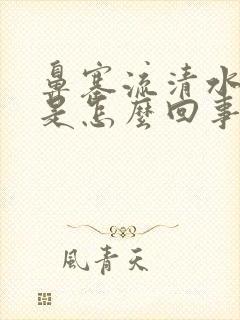 鼻塞流清水
是怎麼回事
風青天